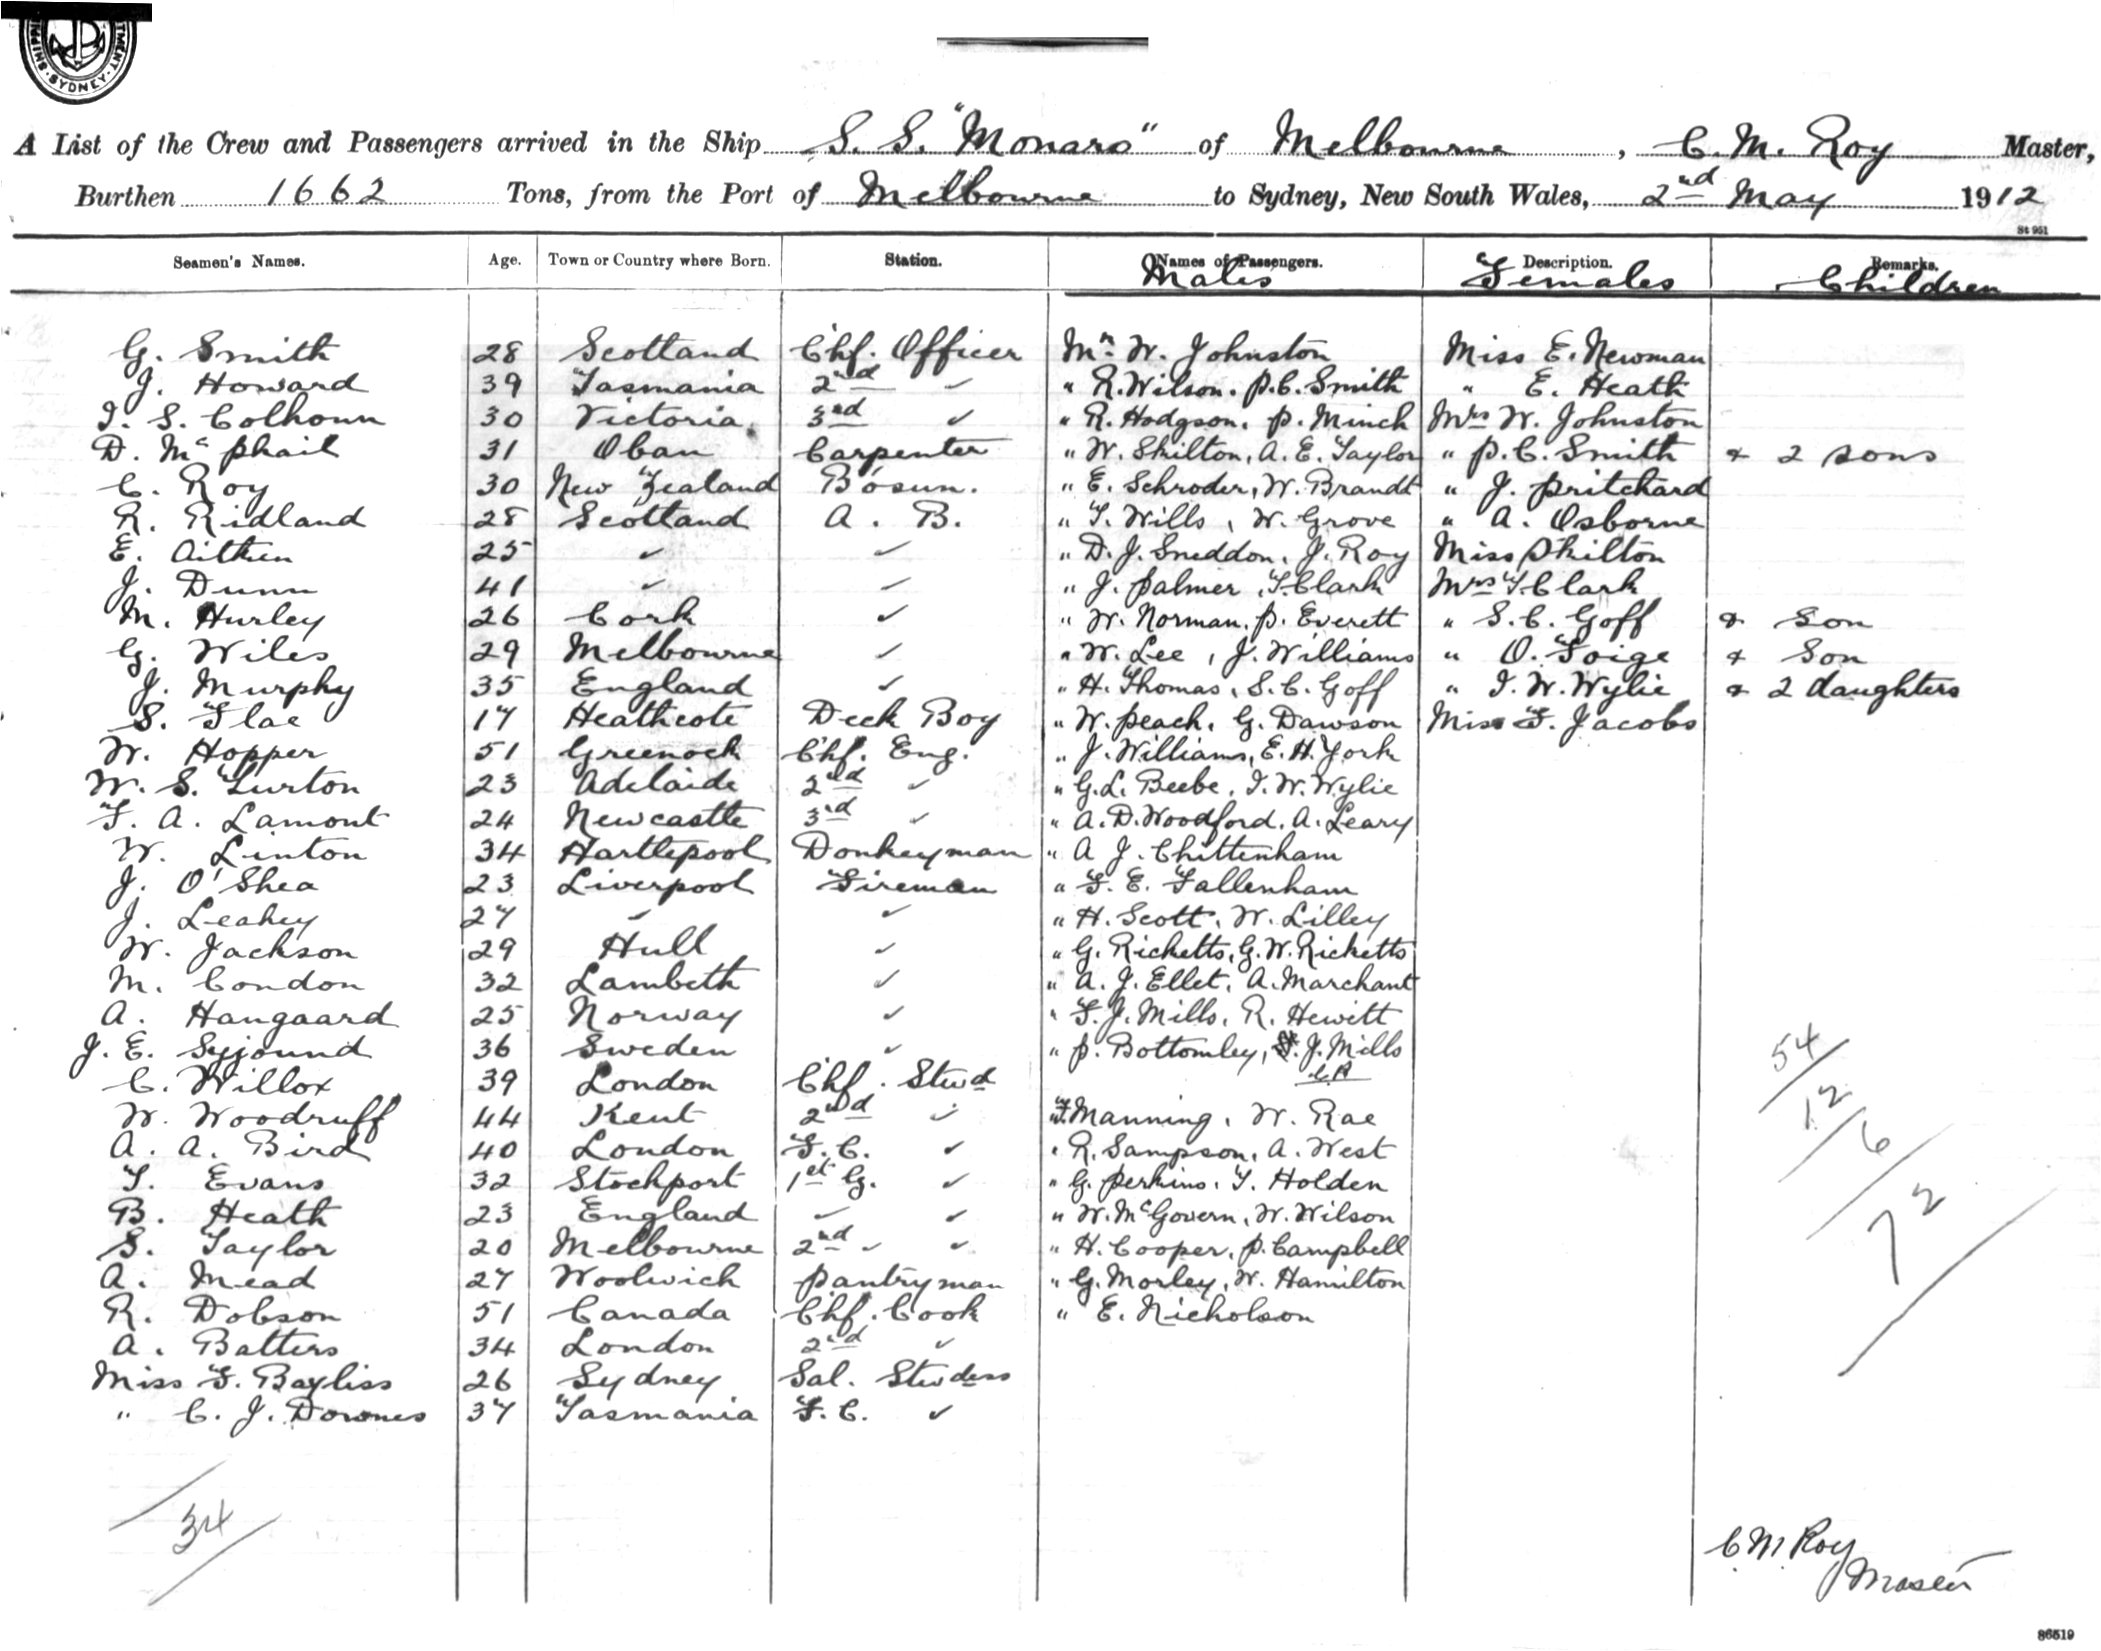 SHIPPING DEPARTMENT SYDNEY
A List of the Crew and Passengers arrived in the Ship S. S. "Monaro" of Melbourne, C. M. Roy Master,
Burthen 1662 Tons, from the Port of Melbourne to Sydney, New South Wales, 2nd May 1912
St 951
Seamen's Names. Age. Town or Country where Born. Station. Names of Passengers. Description. Remarks.
Males Females Children
G. Smith 28 Scotland Chf. Officer Mr. W. Johnston Miss E. Newman
J. Howard 39 Tasmania 2nd ✓ " R. Wilson. P.C. Smith " E. Heath
I. S. Colhoun 30 Victoria 3rd ✓ " R. Hodgson. P. Minch Mrs W. Johnston
D. Mc Phail 31 Oban Carpenter " W. Skilton, A. E. Taylor " P. C. Smith & 2 sons
C. Roy 30 New Zealand Bosun. " E. Schroder, W. Brandt " J. Pritchard
R. Ridland 28 Scotland A. B. " T. Wills, W. Grove " A. Osborne
E. Aitken 25 ✓ ✓ " D. J. Sneddon, J. Roy Miss Skilton
J. Dunn 41 ✓ ✓ " J. Palmer, T. Clark Mrs T. Clark
M. Hurley 26 Cork ✓ " W. Norman. P. Everett " S. C. Goff & Son
G. Wiles 29 Melbourne ✓ " W. Lee, J. Williams " O. Foige & Son
J. Murphy 35 England ✓ " H. Thomas, S. C. Goff " I. W. Wylie & 2 daughters
S. Flae 17 Heathcote Deck Boy " W. Peach, G. Dawson Miss F. Jacobs
W. Hopper 51 Greenock Chf. Eng. " J. Williams, E. H. York
W. S. Turton 23 Adelaide 2nd ✓ " G. L. Beebe, I. W. Wylie
F. A. Lamont 24 Newcastle 3rd ✓ " A. D. Woodford. A. Leary
W. Linton 34 Hartlepool Donkeyman " A J. Chittenham
J. O'Shea 23 Liverpool Fireman " F. E. Fallenham
J. Leahey 27 ✓ ✓ " H. Scott, W. Lilley
W. Jackson 29 Hull ✓ " G. Ricketts, G. W. Ricketts
M. Condon 32 Lambeth ✓ " A. J. Ellet, A. Marchant
A. Hangaard 25 Norway ✓ " F. J. Mills, R. Hewitt
J. E. Syjound 36 Sweden ✓ " P. Bottomley, F. J. Mills
C. Willox 39 London Chf. Stwd
W. Woodruff 44 Kent 2nd ✓ " F. Manning, W. Rae
A. A. Bird 40 London F. C. ✓ " R. Sampson, A. West
T. Evans 32 Stockport 1st G. ✓ " G. Perkins, T. Holden
B. Heath 23 England ✓ ✓ " W. McGovern, W. Wilson
S. Taylor 20 Melbourne 2nd ✓ ✓ " H. Cooper, P. Campbell
A. Mead 27 Woolwich Pantryman " G. Morley, W. Hamilton
R. Dobson 51 Canada Chf. Cook " E. Nicholson
A. Batters 34 London 2nd ✓
Miss F. Bayliss 26 Sydney Sal. Stwdess
" C. J. Downes 37 Tasmania F. C. ✓
54
12
6
72
34
C M Roy
Master
86519